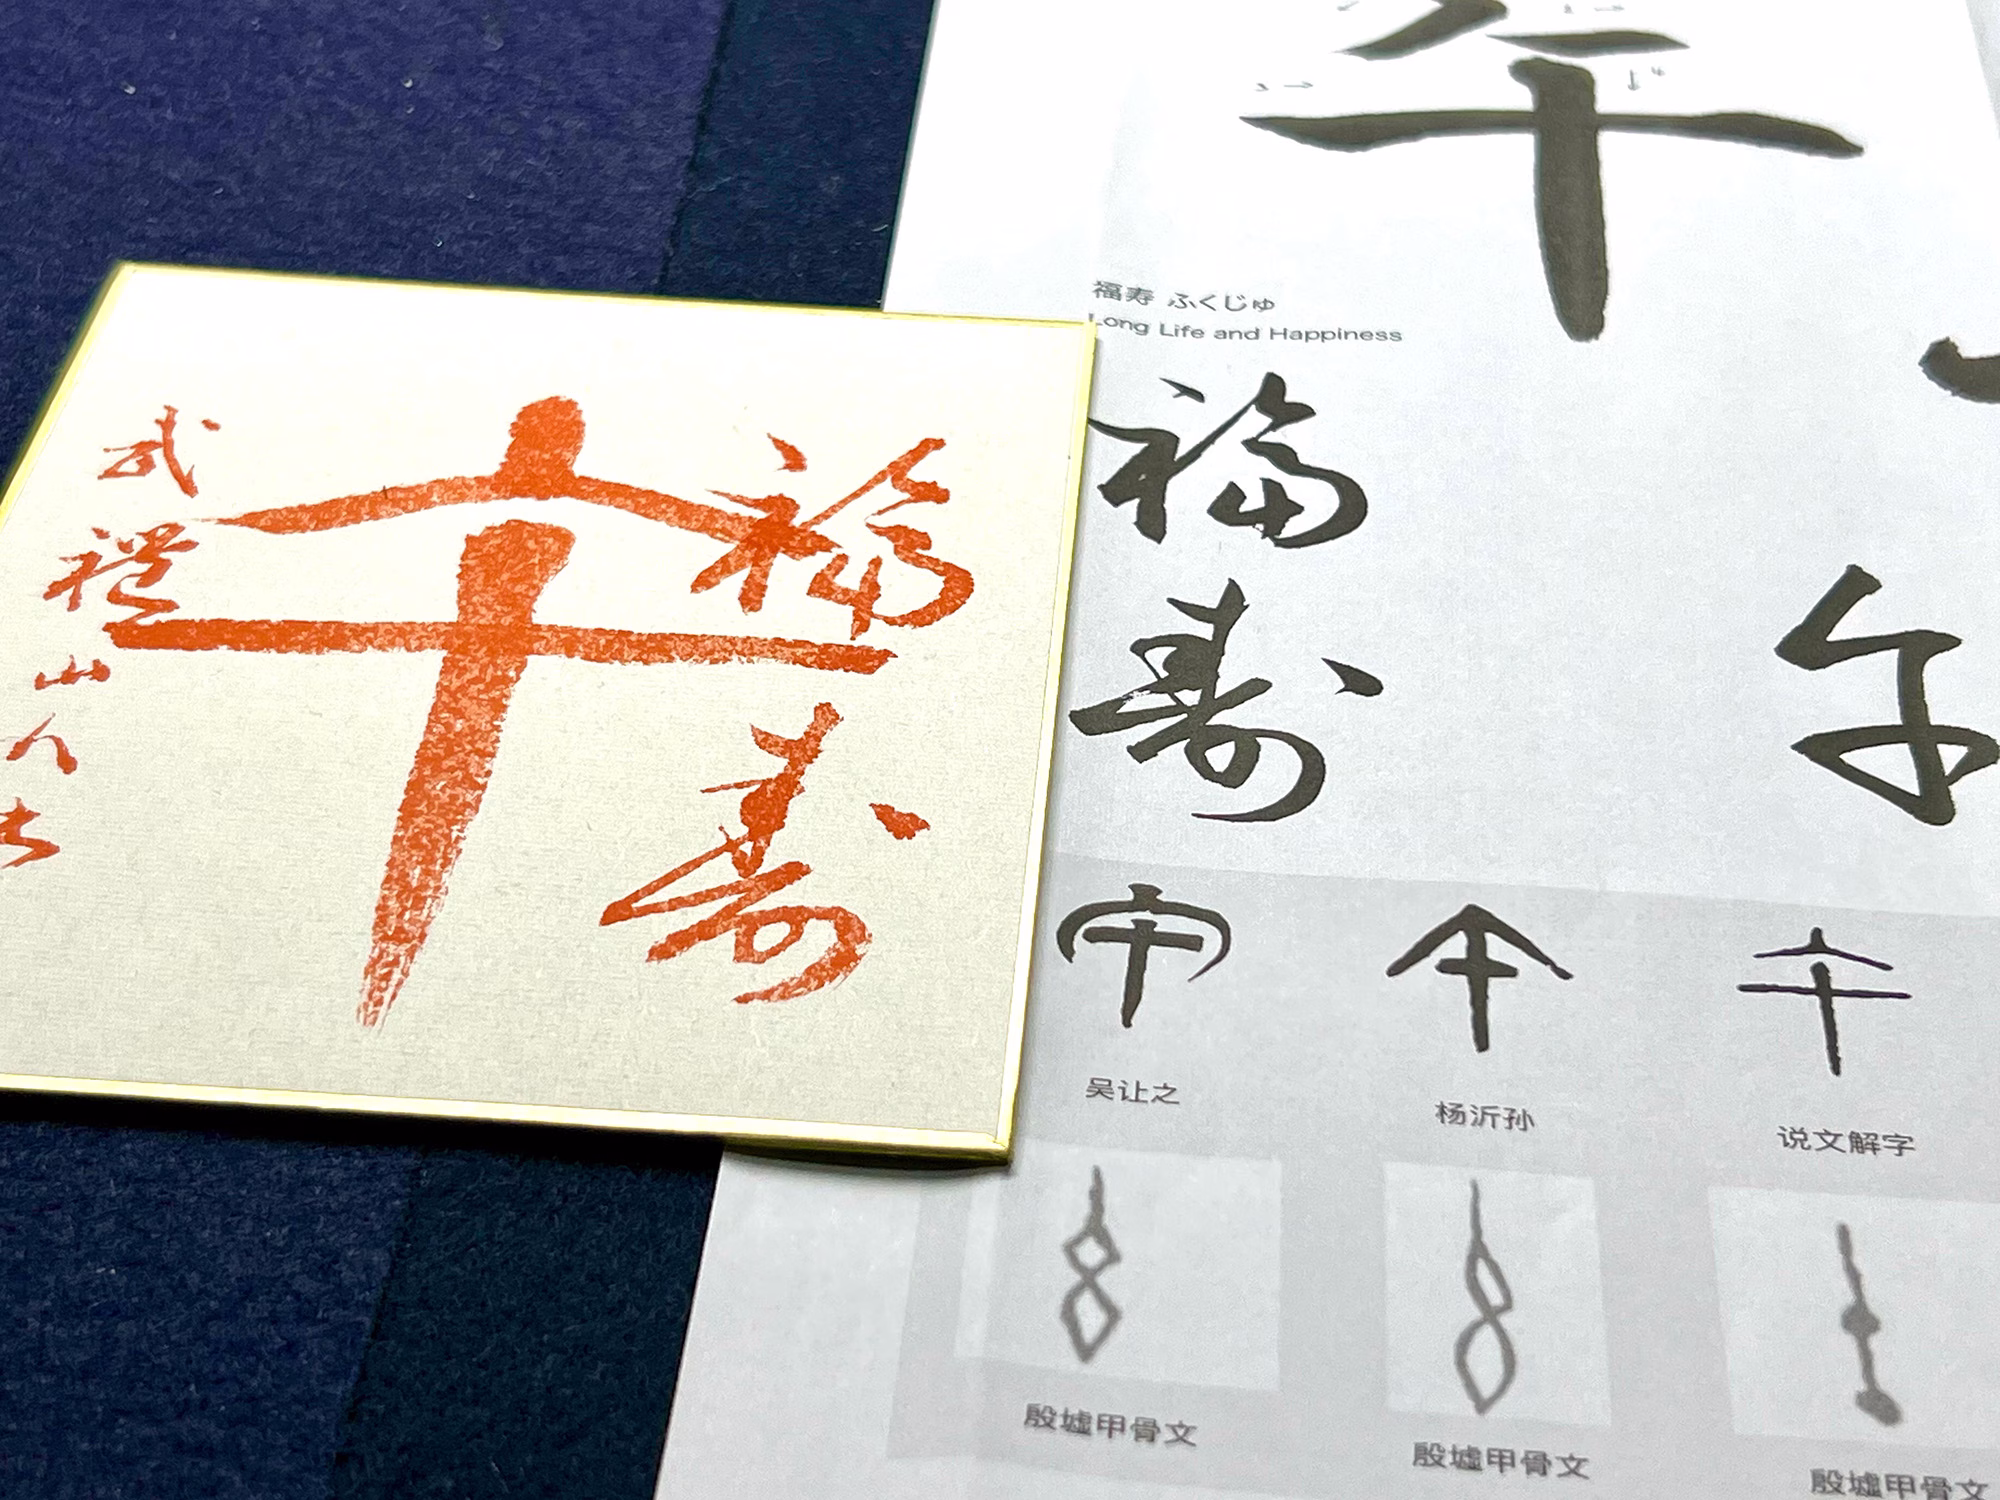 午
福寿
武禮山人书
午
福寿 ふくじゅ
Long Life and Happiness
福寿
午
吴让之
杨沂孙
说文解字
殷墟甲骨文
殷墟甲骨文
殷墟甲骨文